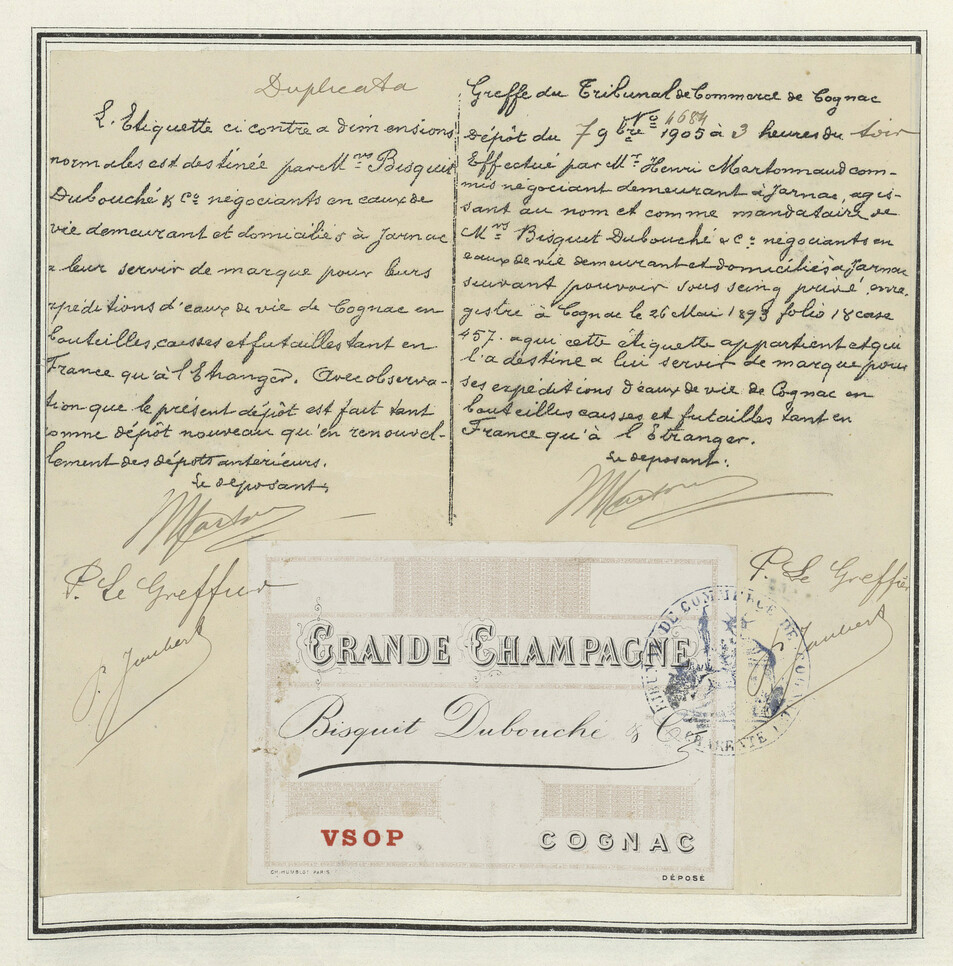 Duplicata
L'Etiquette ci contre a dimensions
normales est destinée par Mrs Bisquit
Dubouché & Co négociants en eaux de
vie demeurant et domiciliés à Jarnac
a leur servir de marque pour leurs
xpéditions d'eaux de vie de Cognac en
bouteilles, caisses et futailles tant en
France qu'à l'Etranger. Avec observa-
tion que le présent dépôt est fait tant
comme dépôt nouveau qu'en renouvel-
lement des dépôts antérieurs.
Le déposant,
P. Le Greffier
P. Jaubert
Greffe du Tribunal de Commerce de Cognac
No 4684
Dépôt du 7 9bre 1905 à 3 heures du soir
Effectué par Mr Henri Martonnaud com-
mis négociant demeurant à Jarnac, agis-
sant au nom et comme mandataire de
Mrs Bisquit Dubouché & Co négociants en
eaux de vie demeurant et domiciliés à Jarnac
suivant pouvoir sous seing privé enre-
gistré à Cognac le 26 Mai 1893 folio 18 case
457. a qui cette étiquette appartient et qui
l'a destine a lui servir de marque pour
ses expéditions d'eaux de vie de Cognac en
bouteilles caisses et futailles tant en
France qu'à l'Étranger.
Le déposant:
P. Le Greffier
P. Jaubert
GRANDE CHAMPAGNE
Bisquit Dubouché & Co
VSOP
COGNAC
CH. HUMBLOT PARIS
DÉPOSÉ
DE COMMERCE DE